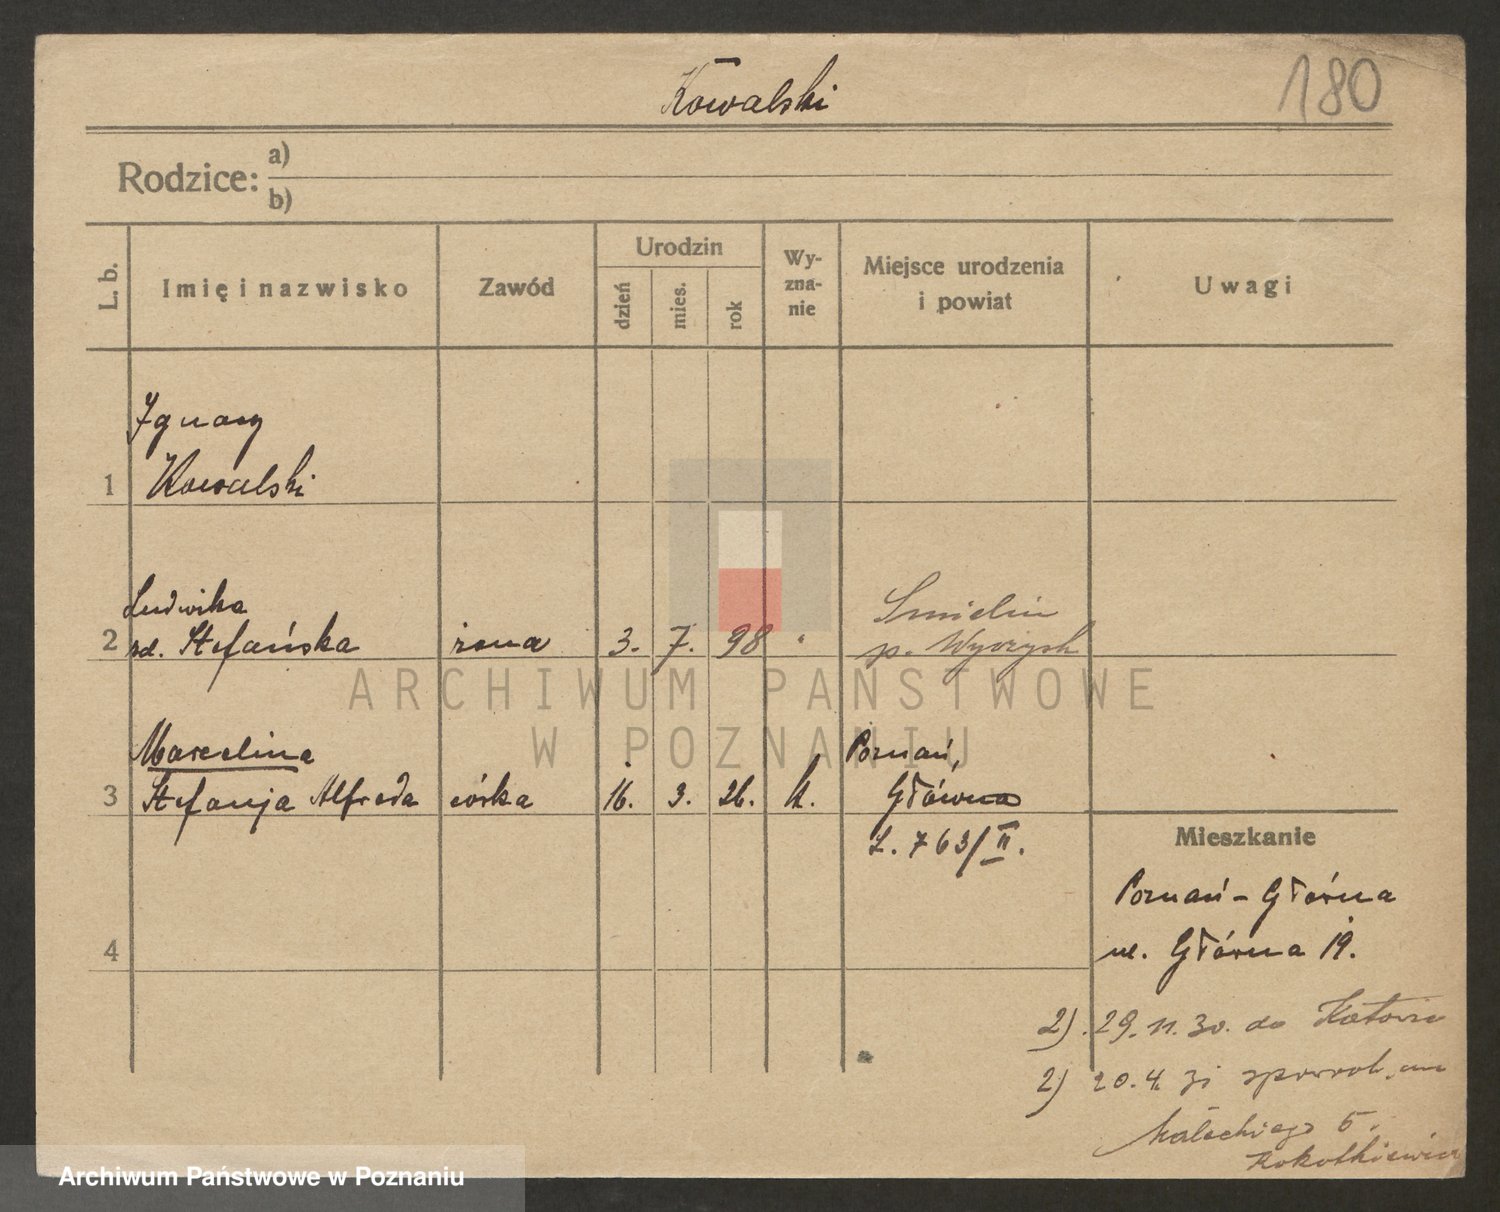 Kowalski
180
Rodzice:
a)
b)
L. b.
Imię i nazwisko
Zawód
Urodzin
dzień
mies.
rok
Wy-
zna-
nie
Miejsce urodzenia
i powiat
Uwagi
Ignacy
1 Kowalski
Ludwika
2 zd. Stefańska żona 3. 7. 98 "
Smielin
p. Wyrzysk
Marcelina
3 Stefanja Alfreda córka 16. 3. 26. k.
Poznań,
Główna
L. 763/II.
4
Mieszkanie
Poznań - Główna
ul. Główna 19.
2) 29. 11. 30. do Katowic
2) 20. 4. 31 sprowadz. na
Małeckiego 5.
ARCHIWUM PAŃSTWOWE
W POZNANIU
Archiwum Państwowe w Poznaniu